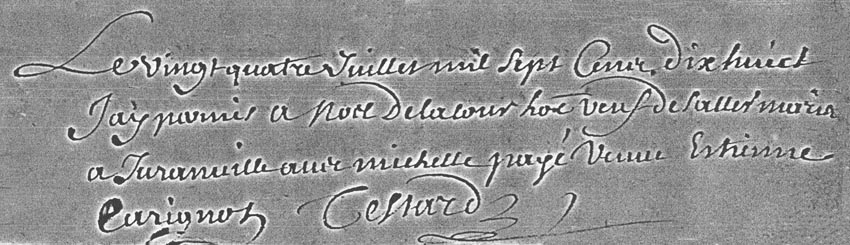 Le vingt quatre Juillet mil sept Cent dix huict
Jay permis a Noel Delacour hoe veuf de saller marier
a Juranville avec michelle payé veuve Estienne
Carignot Tessard